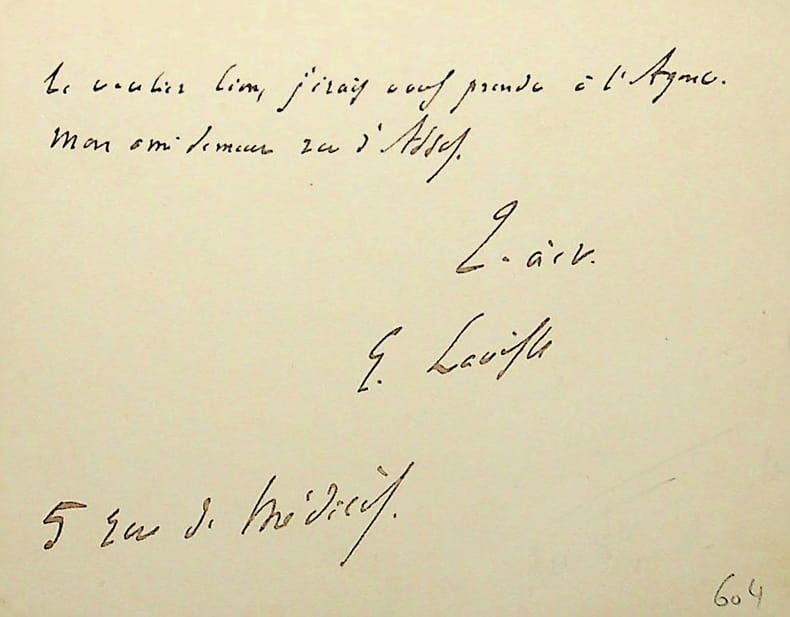 vouliez bien, j'irais vous prendre à l'
Mon ami demeure rue d'Assas.
à v.
E. Lavisse
5 rue de Médicis.
604